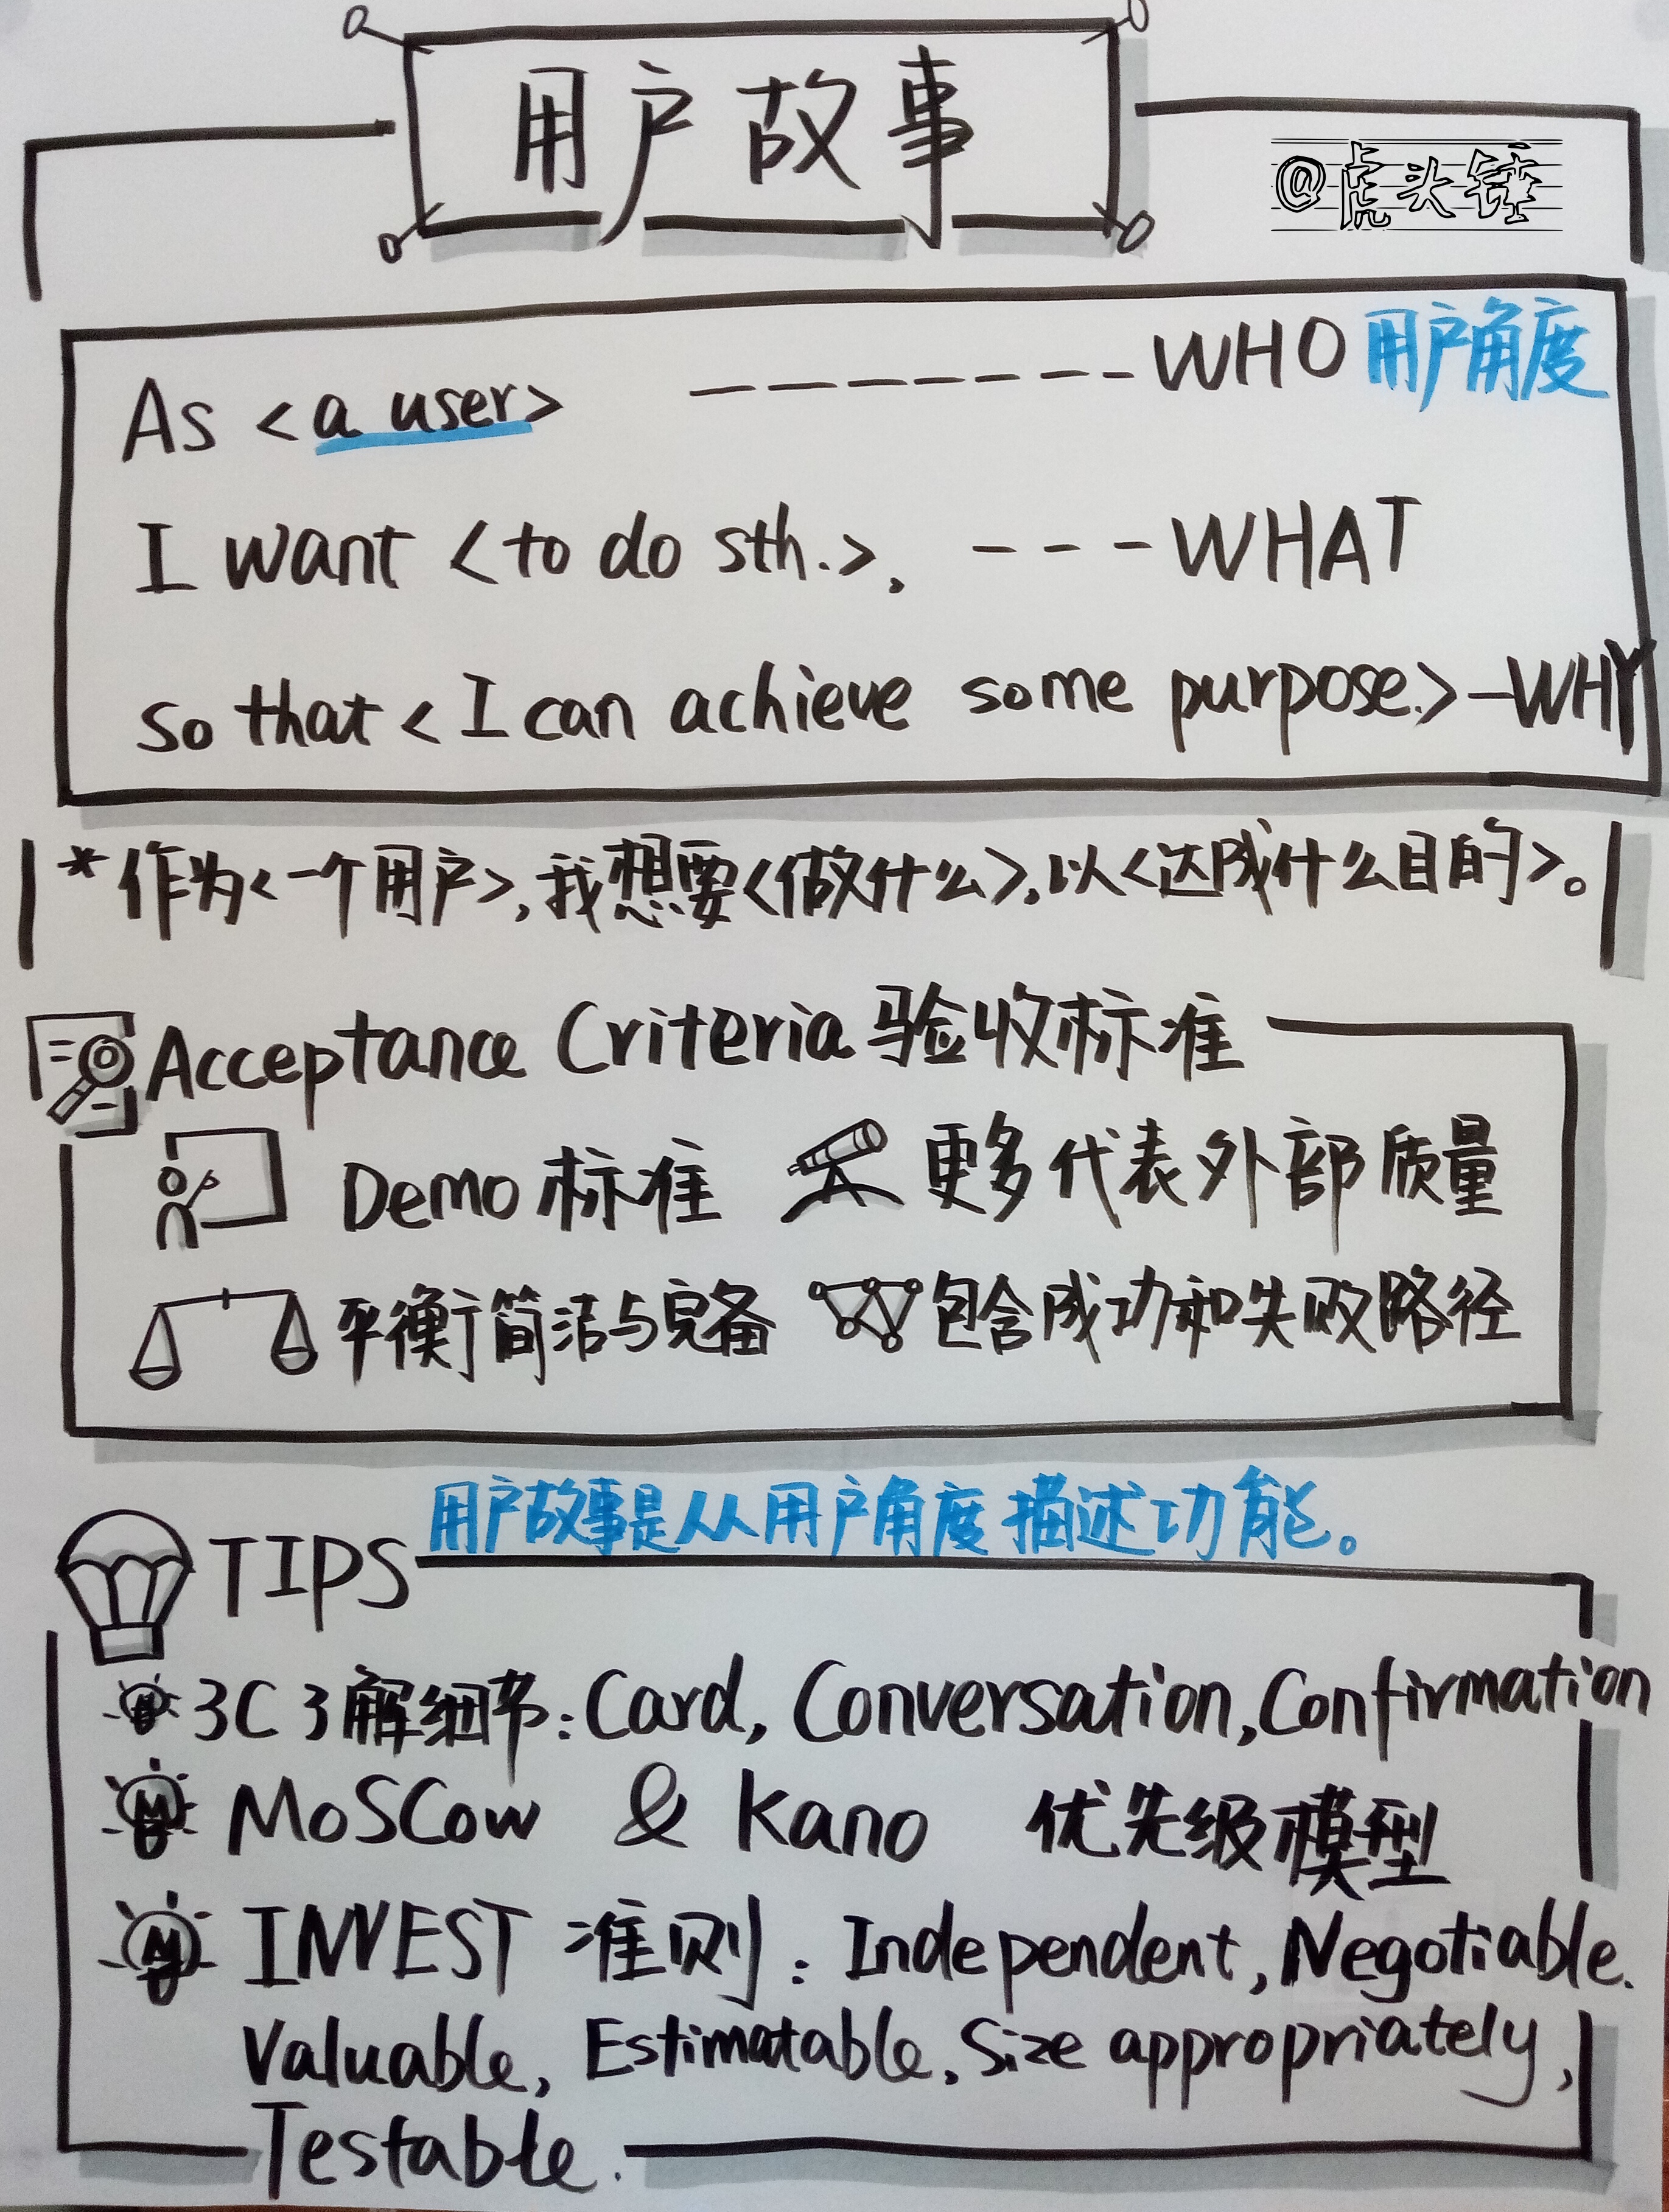 用户故事
@虎头锤
As <a user> -------WHO 用户角度
I want <to do sth.>, ---WHAT
so that <I can achieve some purpose.>-WHY
*作为<一个用户>,我想要<做什么>,以<达成什么目的>。
Acceptance Criteria 验收标准
Demo 标准 更多代表外部质量
平衡简洁与完备 包含成功和失败路径
用户故事是从用户角度描述功能。
TIPS
3C了解细节:Card, Conversation, Confirmation
MoSCoW & Kano 优先级模型
INVEST 准则: Independent, Negotiable.
Valuable, Estimatable, Size appropriately,
Testable.